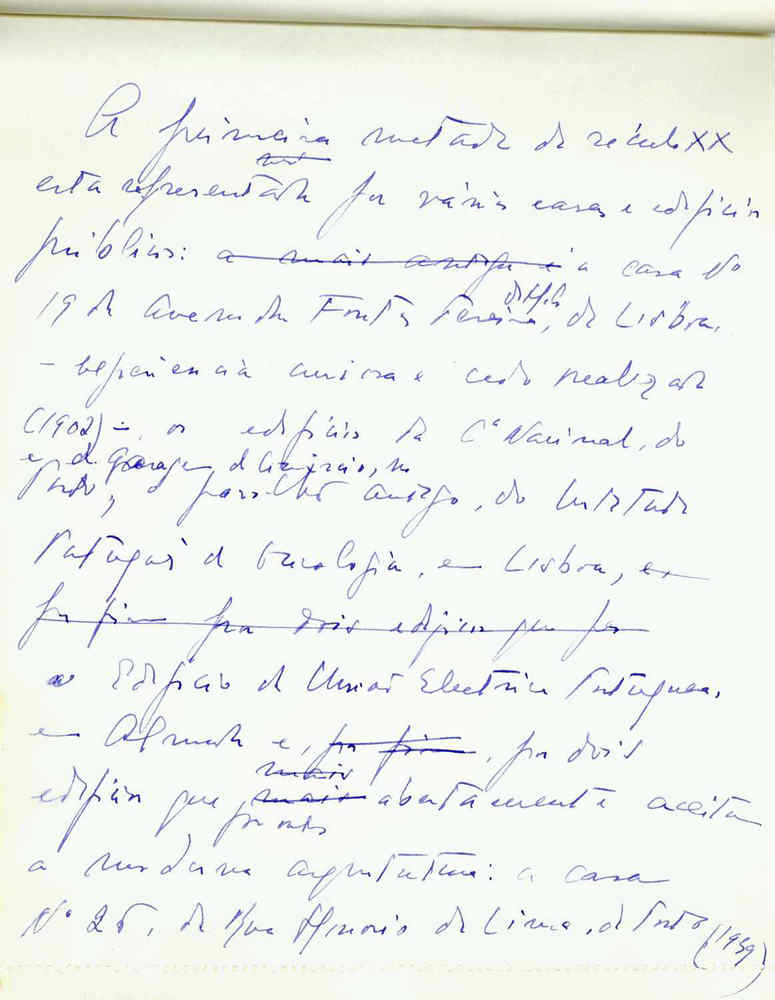 A primeira metade do século XX
está representada por várias casas e edifícios
públicos: a mais antiga é a casa Nº
19 da Avenida Fontes Pereira de M., de Lisboa,
– experiência curiosa e cedo realizada
(1902) –, os edifícios da Cª Nacional, do
e da Garagem d Comércio, no
Porto, o pavilhão antigo, do Instituto
Português de Oncologia, em Lisboa, e
por fim por dois edifícios que
o Edifício da União Electrica Portuguesa,
em Almada e, por fim, por dois
mais
edifícios que mais abertamente aceitam
a moderna arquitectura: a casa
Nº 26, da Rua Honorio de Lima, do Porto (1939)